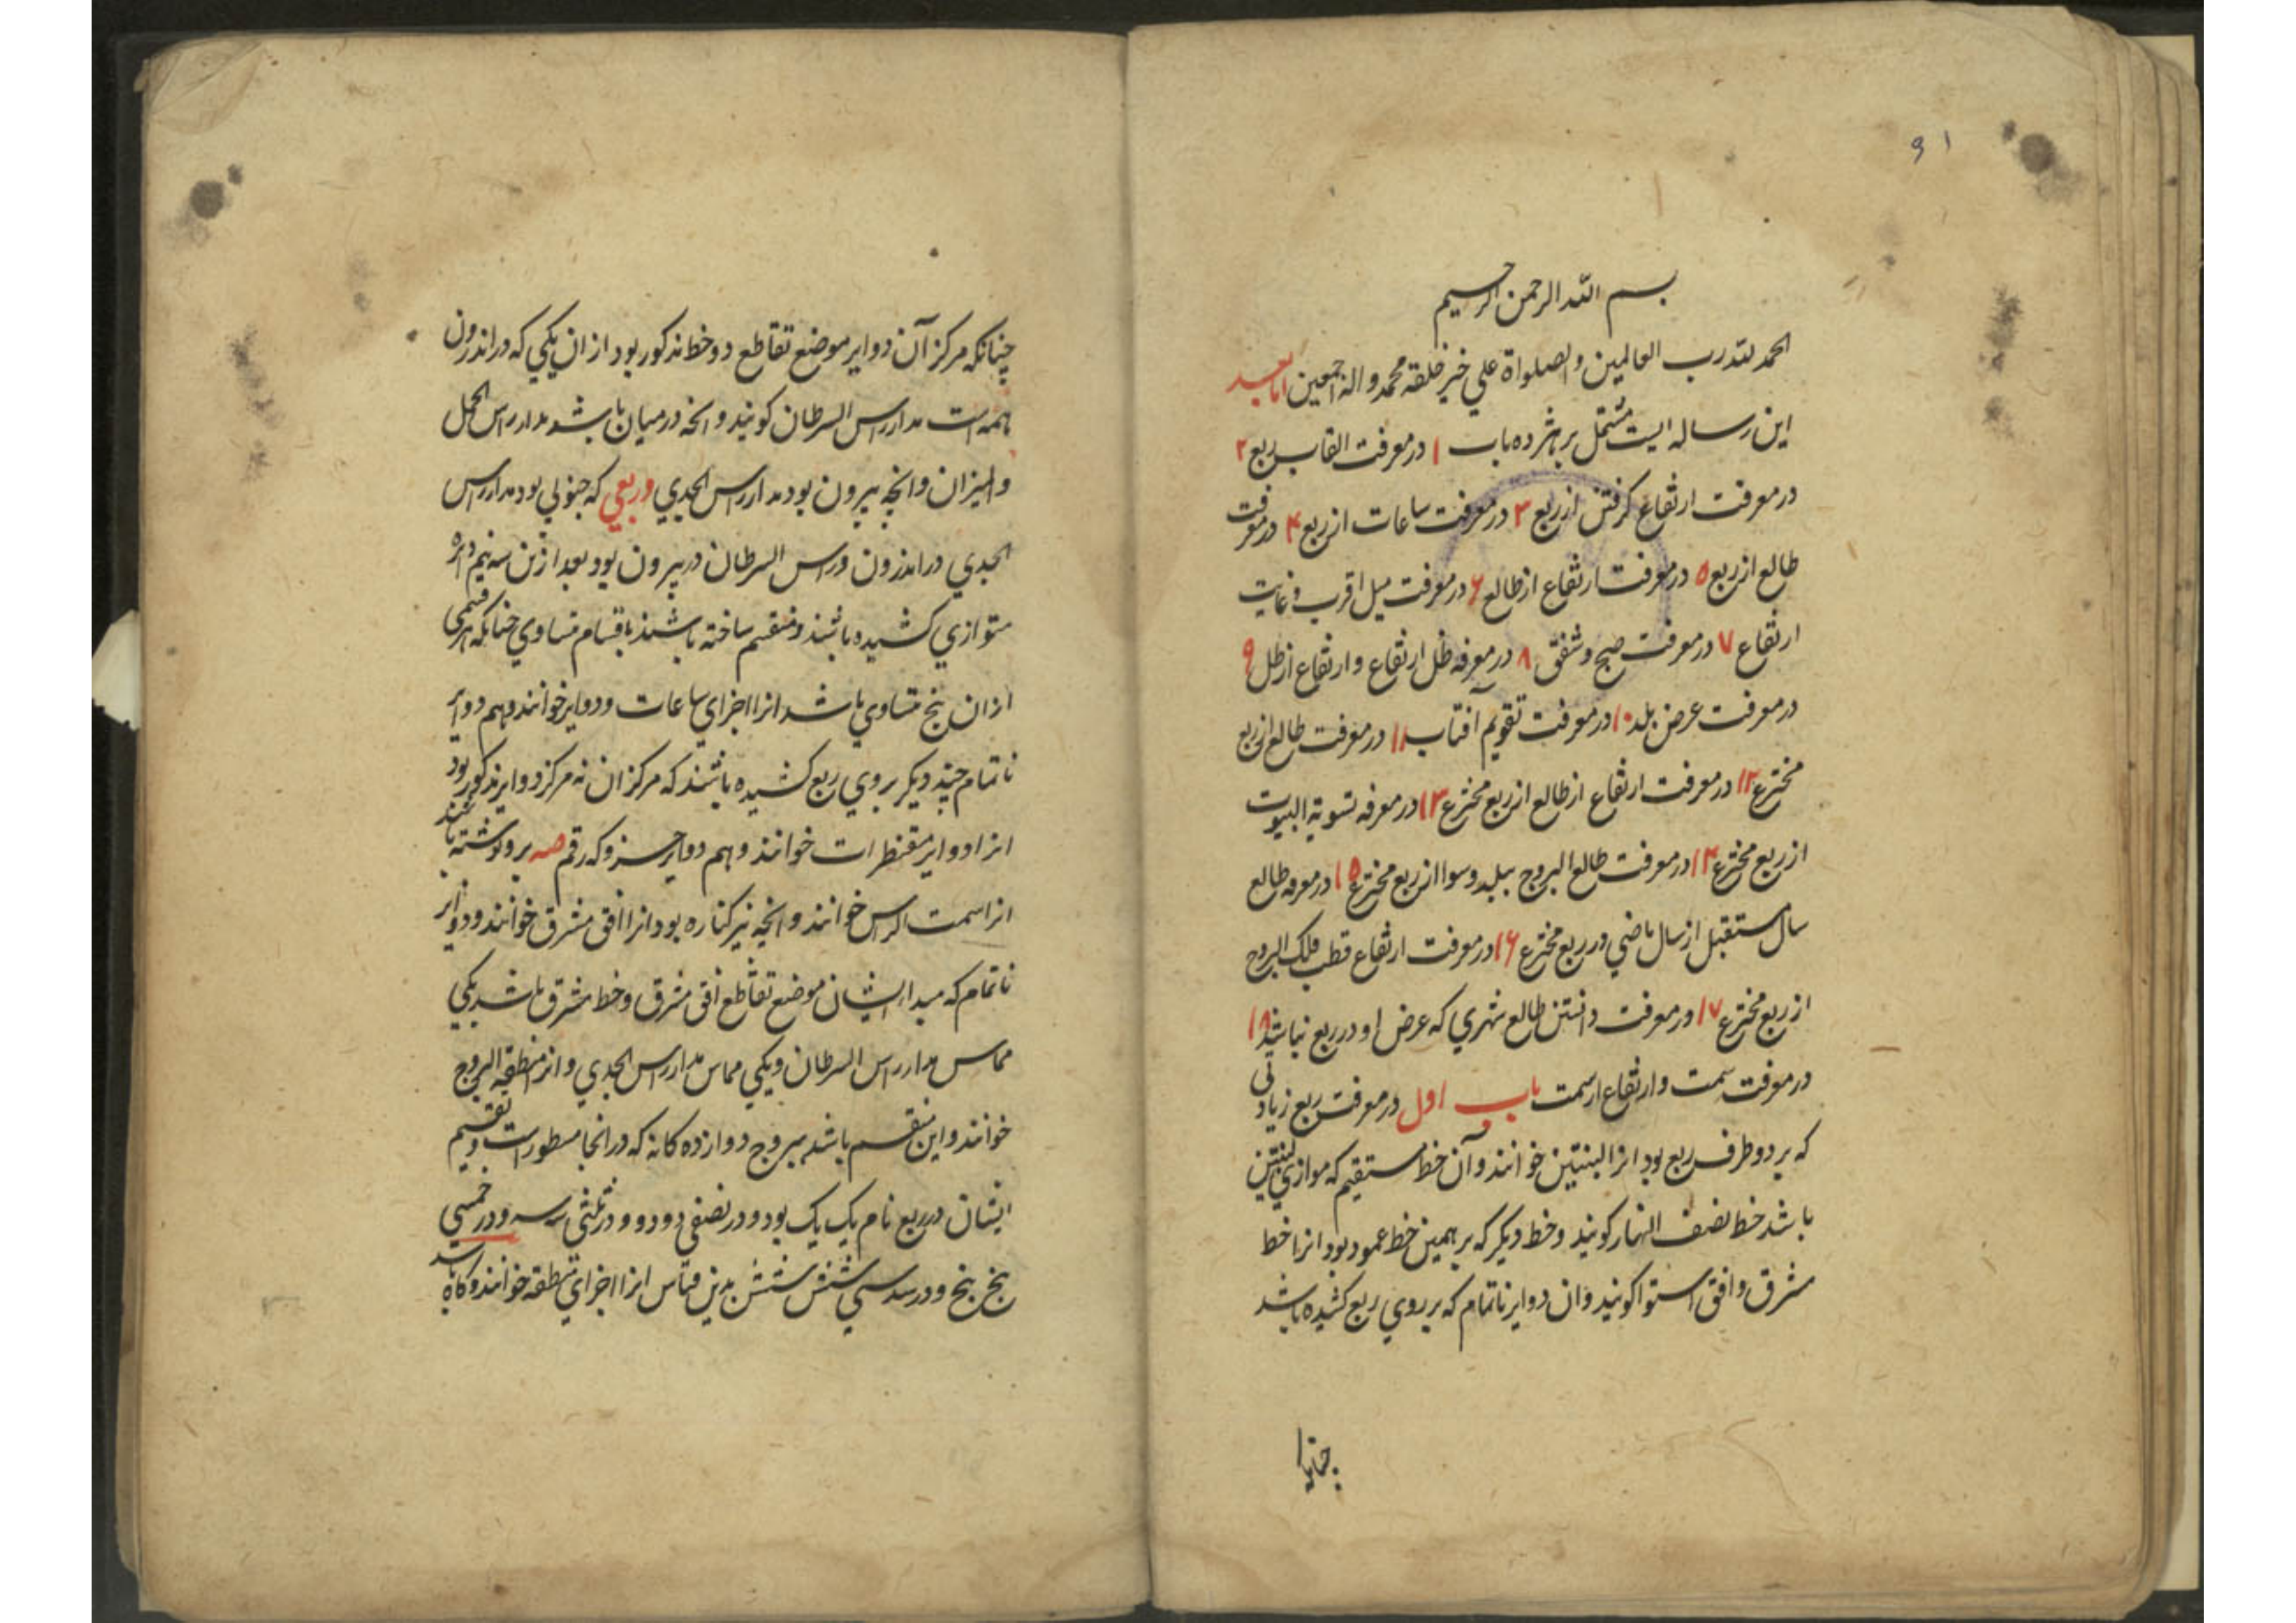 ۹۱
بسم الله الرحمن الرحیم
الحمد لله رب العالمین والصلواة علي خیر خلقه محمد واله اجمعین اما بعد
این رساله ایست مشتمل بر هژده باب ۱ در معرفت القاب ربع ۲
در معرفت ارتفاع کرفتن از ربع ۳ در معرفت ساعات از ربع ۴ در معرفت
طالع از ربع ۵ در معرفت ارتفاع از طالع ۶ در معرفت میل اقرب و غایت
ارتفاع ۷ در معرفت صبح و شفق ۸ در معرفه ظل ارتفاع و ارتفاع از ظل ۹
در معرفت عرض بلد ۱۰ در معرفت تقویم آفتاب ۱۱ در معرفت طالع از ربع
مخترع ۱۲ در معرفت ارتفاع از طالع از ربع مخترع ۱۳ در معرفه تسویة البیوت
از ربع مخترع ۱۴ در معرفت طالع البروج ببلد وسوا از ربع مخترع ۱۵ در معرفه طالع
سال مستقبل از سال ماضي در ربع مخترع ۱۶ در معرفت ارتفاع قطب فلک البروج
از ربع مخترع ۱۷ در معرفت دانستن طالع شهري که عرض او در ربع نباشد ۱۸
در معرفت سمت و ارتفاع از سمت باب اول در معرفت ربع زیادتی
که بر دو طرف ربع بود انرا لبنتین خوانند و آن خط مستقیم که موازي لبنتین
باشد خط نصف النهار کویند و خط دیکر که بر همین خط عمود بود انرا خط
مشرق و افق استوا کویند و ان دوایر ناتمام که بر روي ربع کشیده باشد
چنانکه مرکز آن دوایر موضع تقاطع دو خط مذکور بود از ان یکي که در اندرون
همه است مدار راس السرطان کویند و انچه در میان باشد مدار راس الحمل
والمیزان و انچه بیرون بود مدار راس الجدي و ربعي که جنوبي بود مدار راس
الجدي در اندرون و راس السرطان در بیرون بود بعد ازین سه نیم دایره
متوازي کشیده باشند و منقسم ساخته باشند باقسام متساوي چنانکه هر قسمی
از ان پنج متساوي باشد انرا اجزاي ساعات و دوایر خوانند و هم دوایر
ناتمام چند دیکر بر روي ربع کشیده باشند که مرکز ان نه مرکز دوایر مذکور بود
انرا دوایر مقنطرات خوانند و هم دوایر که رقم صه برو نوشته باشند
انرا سمت الراس خوانند و انچه نیز کناره بود انرا افق مشرق خوانند و دوایر
ناتمام که مبدا ایشان موضع تقاطع افق مشرق و خط مشرق باشد یکي
مماس مدار راس السرطان و یکي مماس مدار راس الجدي و انرا منطقة البروج
خوانند و این منقسم باشد ببروج دوازده کانه که در انجا مسطور است و تقسیم
ایشان در ربع تام یک یک بود و در نصفي دو دو و در ثلثي سه سه و در خمسي
پنج پنج و در سدسي شش شش بدین قیاس انرا اجزاي منطقه خوانند و کاه باشد
چنانکه